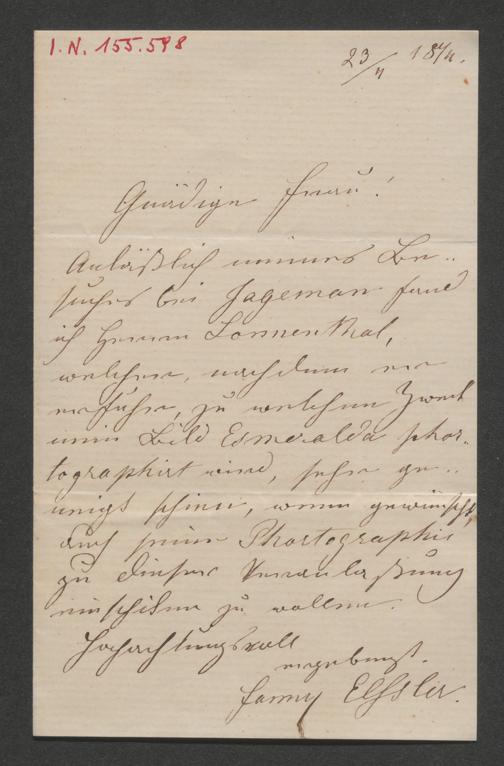 I.N. 155.598
23/4 1874.
Gnädige Frau!
Anläßlich meines Be-
suches bei Jageman fand
ich Herrn Sonnenthal,
welcher, nachdem er
erfuhr, zu welchem Zweck
mein Bild Esmeralda phor-
tographirt wird, sehr ge-
neigt schien, wenn gewünscht,
auch seine Phortographie
zu dieser Veranlaßung
einschiken zu wollen.
Hochachtungsvoll
ergebenst.
Fanny Elßler.